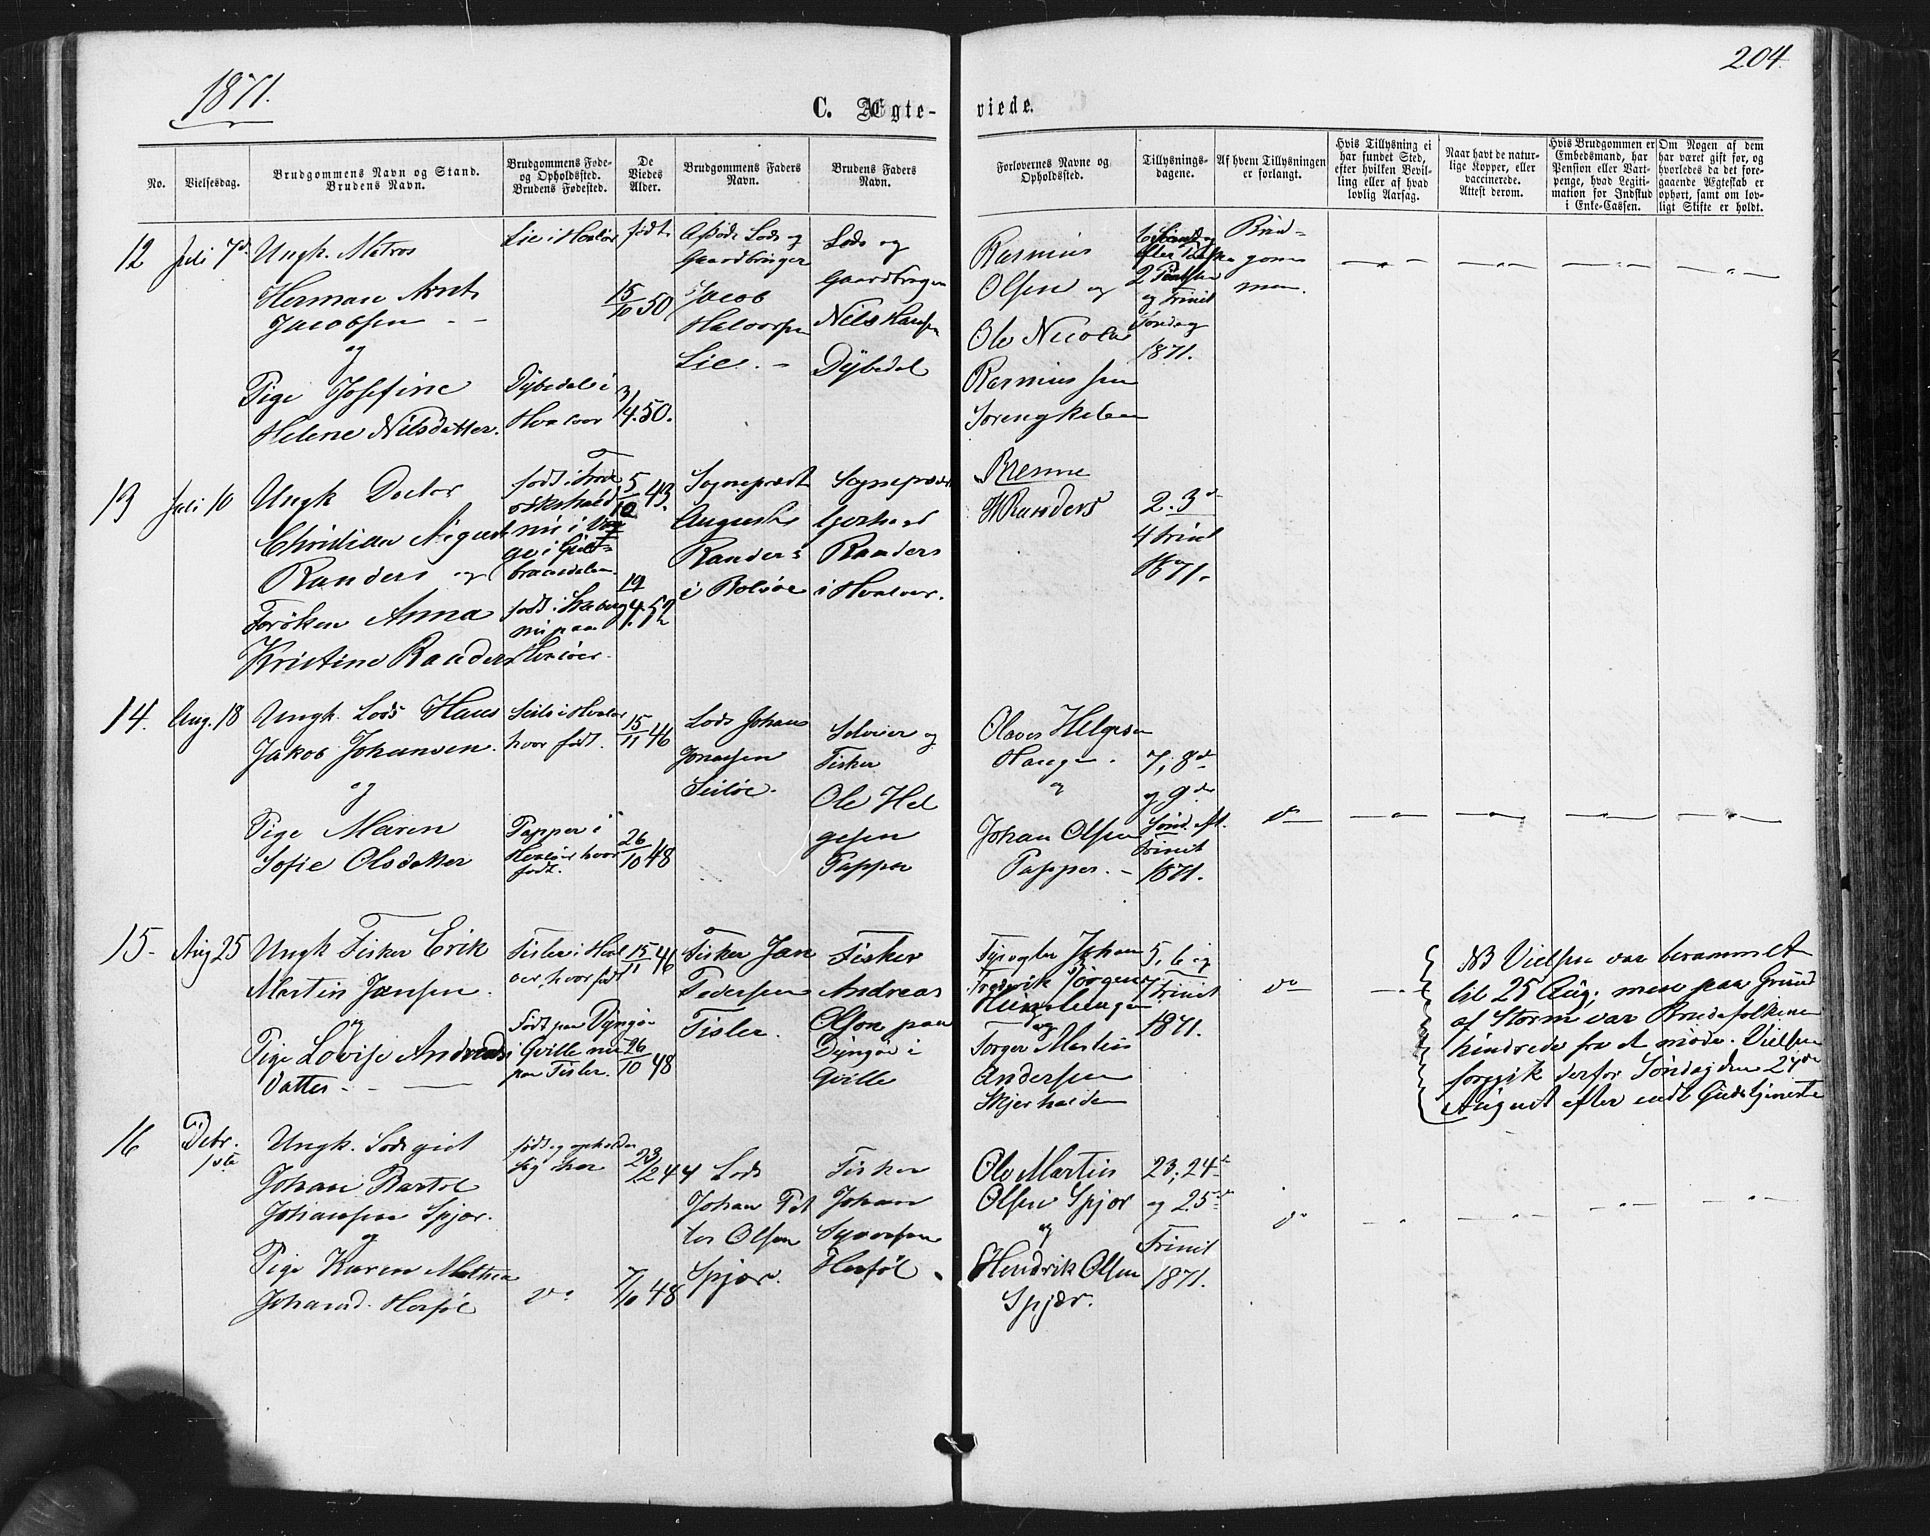 1871.
204.
C. Ægte-
viede.
No.
Vielsesdag.
Brudgommens Navn og Stand.
Brudens Navn.
Brudgommens Føde-
og Opholdssted.
Brudens Fødested.
De
Viedes
Alder.
Brudgommens Faders
Navn.
Brudens Faders
Navn.
Forlovernes Navne og
Opholdssted.
Tillysnings-
dagene.
Af hvem Tillysningen
er forlangt.
Hvis Tillysning ei
har fundet Sted,
efter hvilken Bevil-
ling eller af hvad
lovlig Aarsag.
Naar havt de natur-
lige Kopper, eller
vaccinerede.
Attest derom.
Hvis Brudgommen er
Embedsmand, har
Pension eller Vart-
penge, hvad Legiti-
mation for Indskud
i Enke-Cassen.
Om Nogen af dem
har været gift før, og
hvorledes da det fore-
gaaende Ægteskab er
ophørt, samt om lov-
ligt Skifte er holdt.
12
Juli 7de
Ungk. Matros
Herman Arnt
Jacobsen
og
Pige Josefine
Helene Nilsdatter.
Lie i Hvaløer
Dybedal i
Hvaløer
født
15/10 50
3/4.50.
Lods og
Gaardbruger
Jacob
Halvorsen
Lie. -
Lods og
Gaardbruger
Nils Hansen
Dybedal
Rasmus
Olsen og
Ole Nicolai
Rasmussen
og Trinit
Søndag
1871.
Brud-
gom-
men.
13
Juli 10
Ungk Doctor
Christian August
Randers og
Frøken Anna
Kristine Randers
født i
nu i
født i
nu paa
Hvaløer.
5/12 43.
19/4.52
Sognepræst
Augustus
Randers
i Bolsøe
Sognepræst
Gerhard
Randers
i Hvaløer.
Randers
2. 3de
4 Trinit
1871.
14.
Aug. 18
Ungk. Lods Hans
Jakob Johansen.
og
Pige Maren
Sofie Olsdatter
Seilø i Hvaløer
hvor født.
Papper i
Hvaløer hvor
født.
15/11 46
26/10 48
Lods Johan
Jonassen
Seiløe.
Selveier og
Fisker
Ole Hel
gesen
Papper
Olaves Helgesen
Hauge.
og
Johan Olsen
Papper. -
7, 8de
og 9de
Sønd. eft.
Trinit
1871.
do
15-
Aug 25
Ungk Fisker Erik
Martin Jansen.
og
Pige Lovise Andreas
datter
Tisler i Hval
øer, hvor født
Født paa Dyngø
i Qville nu
paa Tisler.
15/11 46
26/10 48
Fisker Jan
Pedersen
Tisler.
Fisker
Andreas
Olsen paa
Dyngøe i
Qville
Fyrvogter Johan
Fredrik Jørgensen
og
Torger Martin
Andersen
Skjærhalden
5, 6 og
7 Trinit
1871.
do
NB Vielsen var berammet
til 25 Aug; men paa Grund
af Storm var Brudefolkene
hindrede fra at møde. Vielsen
foregik derfor Søndag den 27de
August efter endt Gudstjeneste
16
Debr.
1ste
Ungk. Lods
Johan Bartol
Johansen Spjær.
og
Pige Karen Mathea
Johansd. Herføl
født og opholder
sig her
do
23/2 44
7/10 48
Lods
Johan Pet
ter Olsen
Spjær.
Fisker
Johan
Syversen
Herføl
Ole Martin
Olsen Spjær
og
Hendrik Olsen
Spjær.
23, 24de
og 25de
Trinit
1871.
do